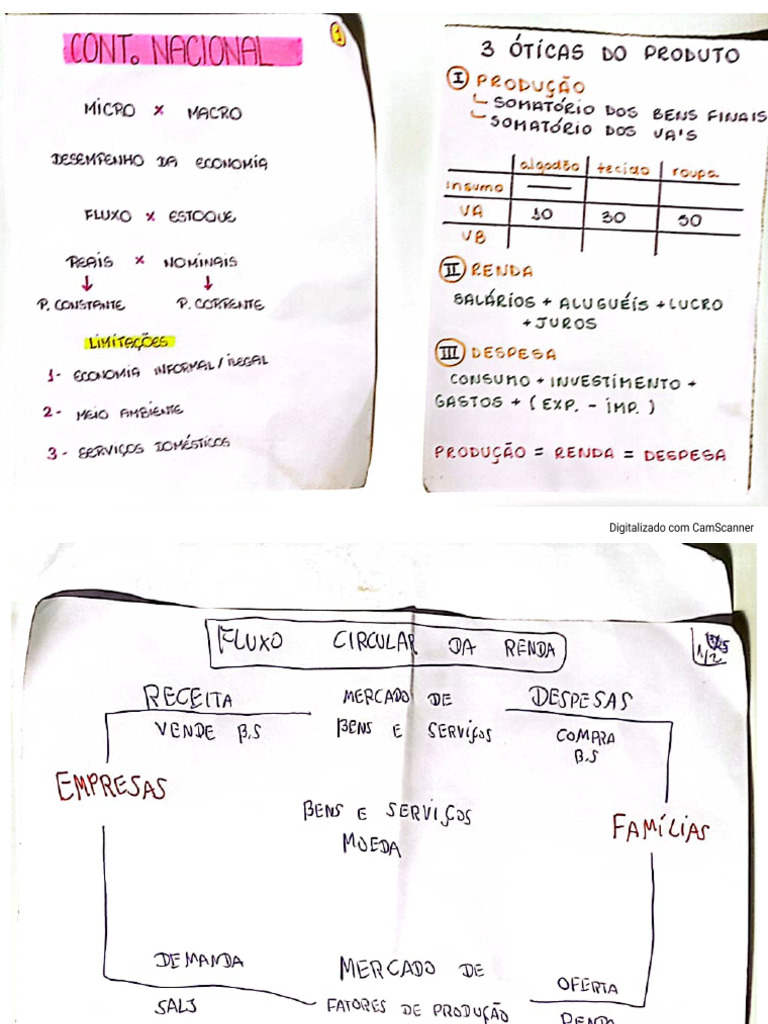 CONT. NACIONAL
1
MICRO x MACRO
DESEMPENHO DA ECONOMIA
FLUXO x ESTOQUE
REAIS x NOMINAIS
P. CONSTANTE P. CORRENTE
LIMITAÇÕES
1- ECONOMIA INFORMAL/ILEGAL
2- MEIO AMBIENTE
3- SERVIÇOS DOMÉSTICOS
3 ÓTICAS DO PRODUTO
I PRODUÇÃO
SOMATÓRIO DOS BENS FINAIS
SOMATÓRIO DOS VA'S
algodão tecido roupa
insumo —
VA 10 30 50
VB
II RENDA
SALÁRIOS + ALUGUÉIS + LUCRO
+ JUROS
III DESPESA
CONSUMO + INVESTIMENTO +
GASTOS + (EXP. - IMP.)
PRODUÇÃO = RENDA = DESPESA
Digitalizado com CamScanner
FLUXO CIRCULAR DA RENDA
1/2
RECEITA MERCADO DE DESPESAS
VENDE B.S BENS E SERVIÇOS COMPRA
B.S
EMPRESAS
BENS E SERVIÇOS FAMÍLIAS
MOEDA
DEMANDA MERCADO DE OFERTA
FATORES DE PRODUÇÃO